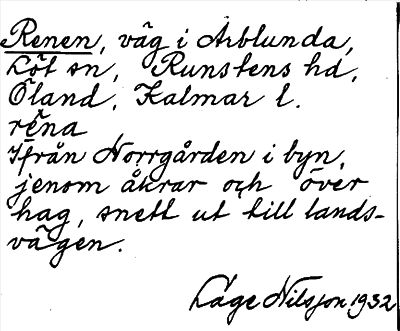 Renen, väg i Arblunda,
Löt sn, Runstens hd,
Öland, Kalmar l.
rēna
Ifrån Norrgården i byn,
jenom åkrar och över
hag, snett ut till lands-
vägen.
Låge Nilsson 1932